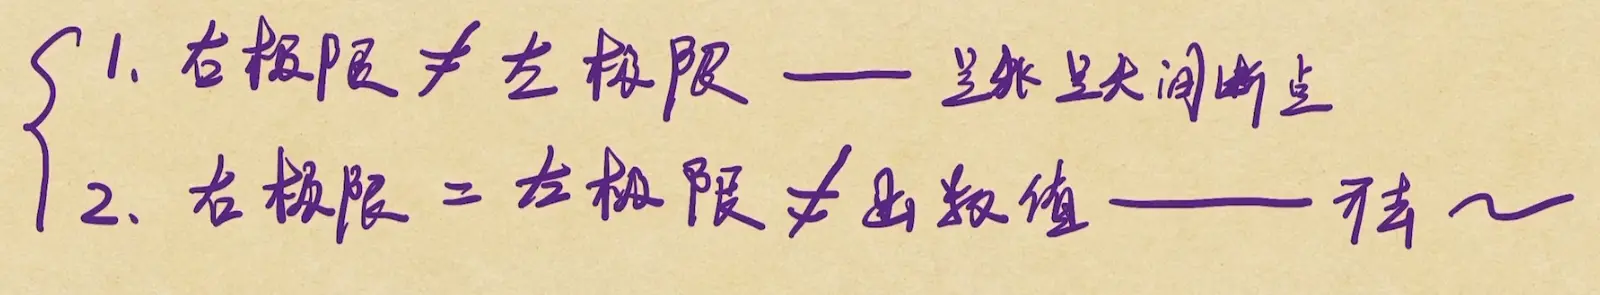 1. 右极限 ≠ 左极限 —— 跳跃间断点
2. 右极限 = 左极限 ≠ 函数值 —— 可去 ~